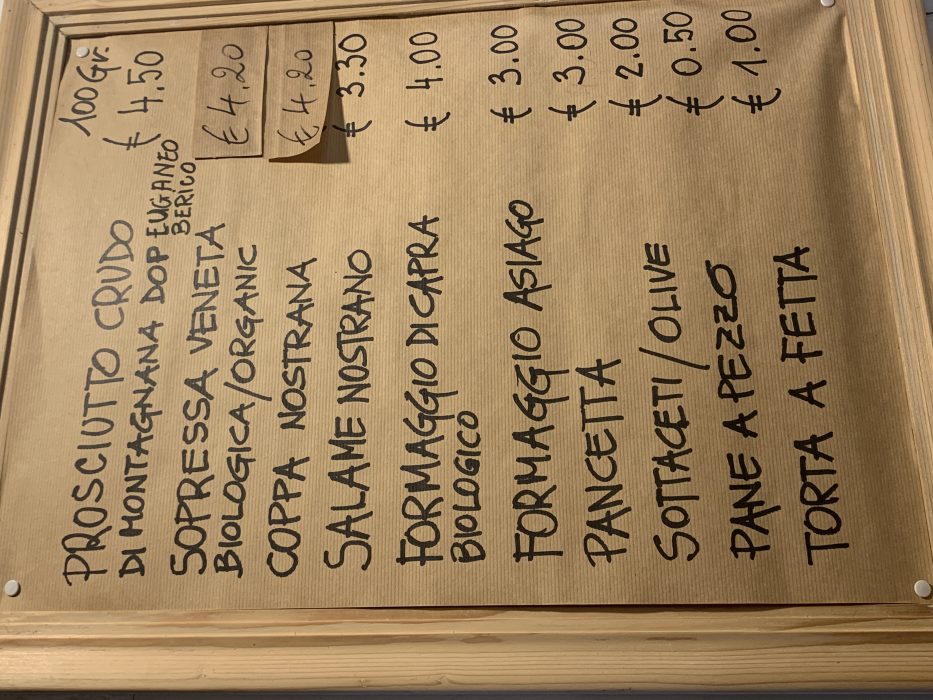 100 Gr.
PROSCIUTTO CRUDO
DI MONTAGNANA DOP EUGANEO € 4.50
BERICO
SOPRESSA VENETA € 4.20
BIOLOGICA/ORGANIC
COPPA NOSTRANA € 4.20
SALAME NOSTRANO € 3.30
FORMAGGIO DI CAPRA € 4.00
BIOLOGICO
FORMAGGIO ASIAGO € 3.00
PANCETTA € 3.00
SOTTACETI / OLIVE € 2.00
PANE A PEZZO € 0.50
TORTA A FETTA € 1.00